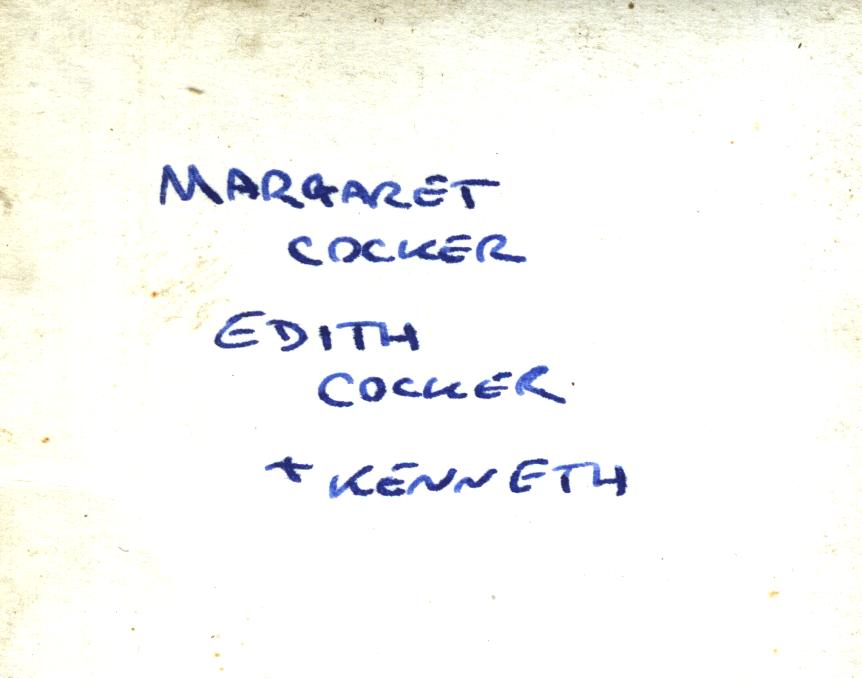 MARGARET
COCKER
EDITH
COCKER
+ KENNETH